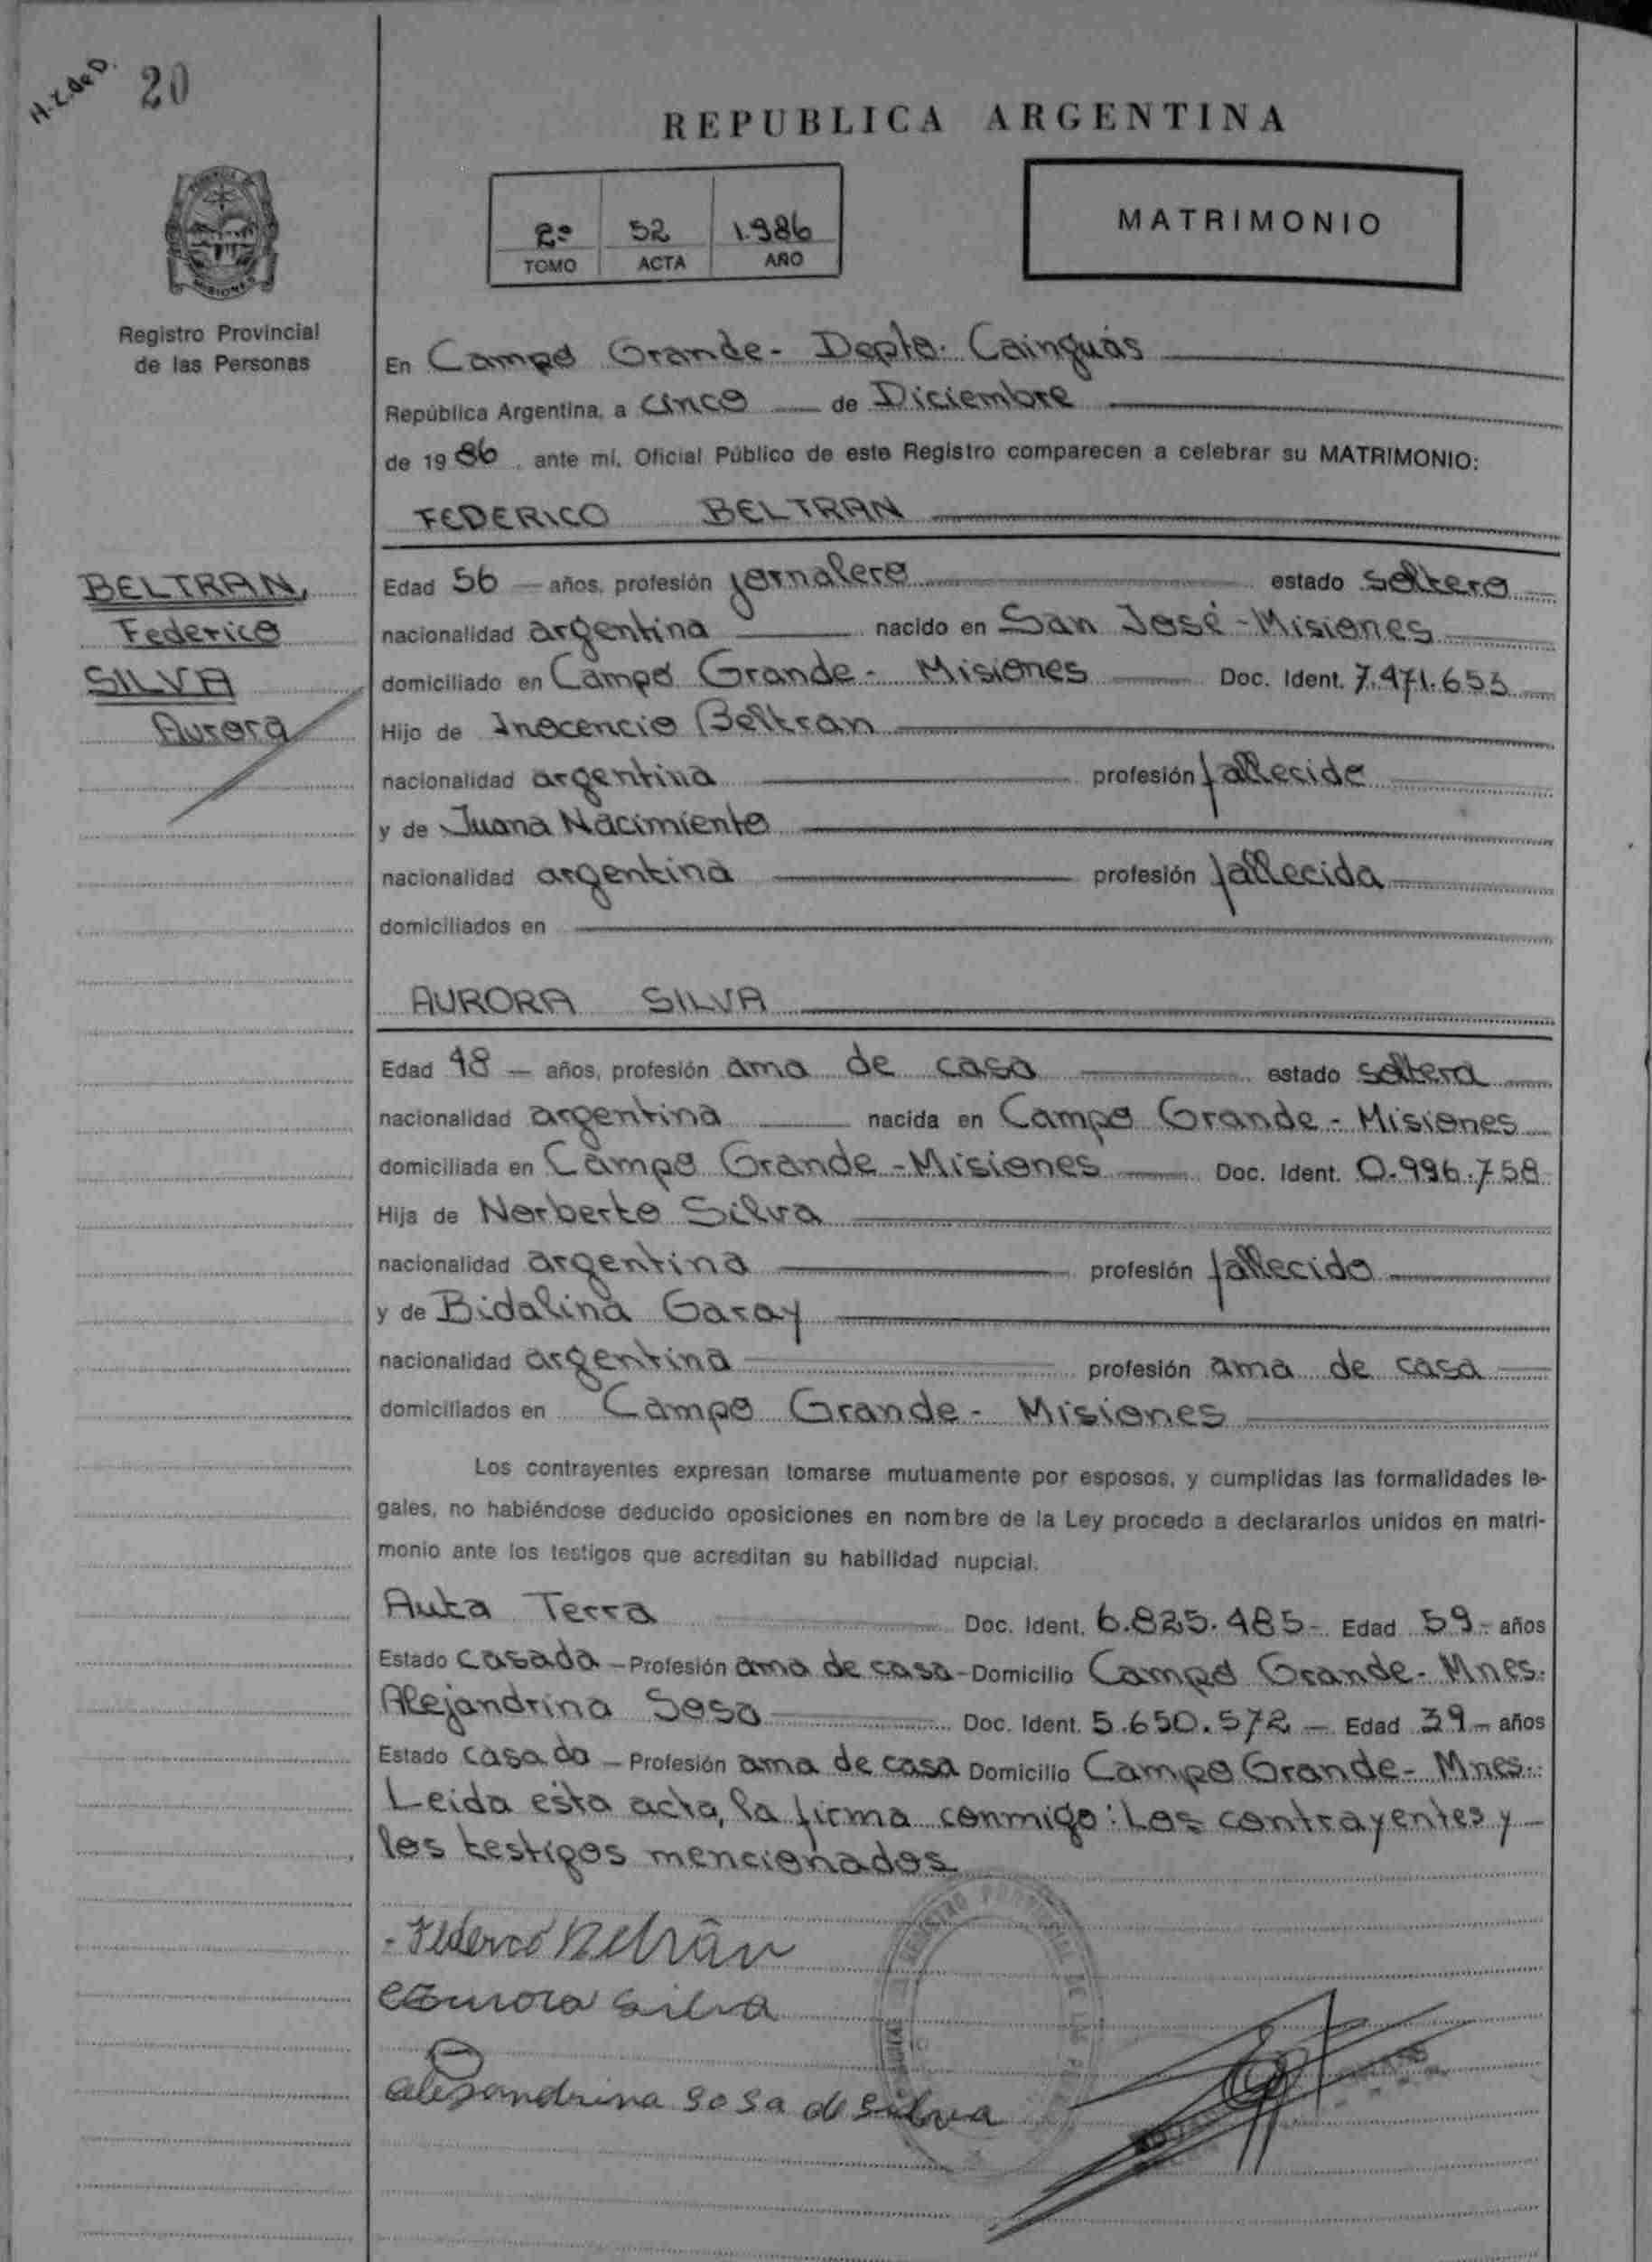 H.Z.deD. 20
REPUBLICA ARGENTINA
2º 52 1.986
TOMO ACTA AÑO
MATRIMONIO
MISIONES
Registro Provincial
de las Personas
En Campo Grande - Depto. Cainguás
República Argentina, a cinco de Diciembre
de 1986, ante mí, Oficial Público de este Registro comparecen a celebrar su MATRIMONIO:
FEDERICO BELTRAN
BELTRAN,
Federico
SILVA
Aurora
Edad 56 años, profesión jornalero estado soltero
nacionalidad argentina nacido en San José - Misiones
domiciliado en Campo Grande - Misiones Doc. Ident. 7.471.653
Hijo de Inocencio Beltran
nacionalidad argentina profesión fallecido
y de Juana Nacimiento
nacionalidad argentina profesión fallecida
domiciliados en
AURORA SILVA
Edad 48 años, profesión ama de casa estado soltera
nacionalidad argentina nacida en Campo Grande - Misiones
domiciliada en Campo Grande - Misiones Doc. Ident. 0.996.758
Hija de Norberto Silva
nacionalidad argentina profesión fallecido
y de Bidalina Garay
nacionalidad argentina profesión ama de casa
domiciliados en Campo Grande - Misiones
Los contrayentes expresan tomarse mutuamente por esposos, y cumplidas las formalidades le-
gales, no habiéndose deducido oposiciones en nombre de la Ley procedo a declararlos unidos en matri-
monio ante los testigos que acreditan su habilidad nupcial.
Auta Terra Doc. Ident. 6.825.485 - Edad 59 - años
Estado casada - Profesión ama de casa - Domicilio Campo Grande - Mnes.
Alejandrina Sosa Doc. Ident. 5.650.572 - Edad 39 - años
Estado casada - Profesión ama de casa Domicilio Campo Grande - Mnes.
Leida esta acta, la firma conmigo: Los contrayentes y
los testigos mencionados
Federco Beltrân
Aurora Silva
alejandrina sosa d silva